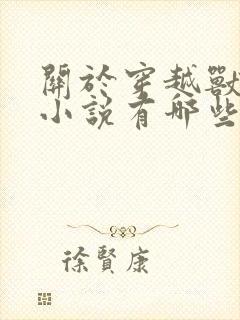 關於穿越獸
小說有哪些
徐賢康